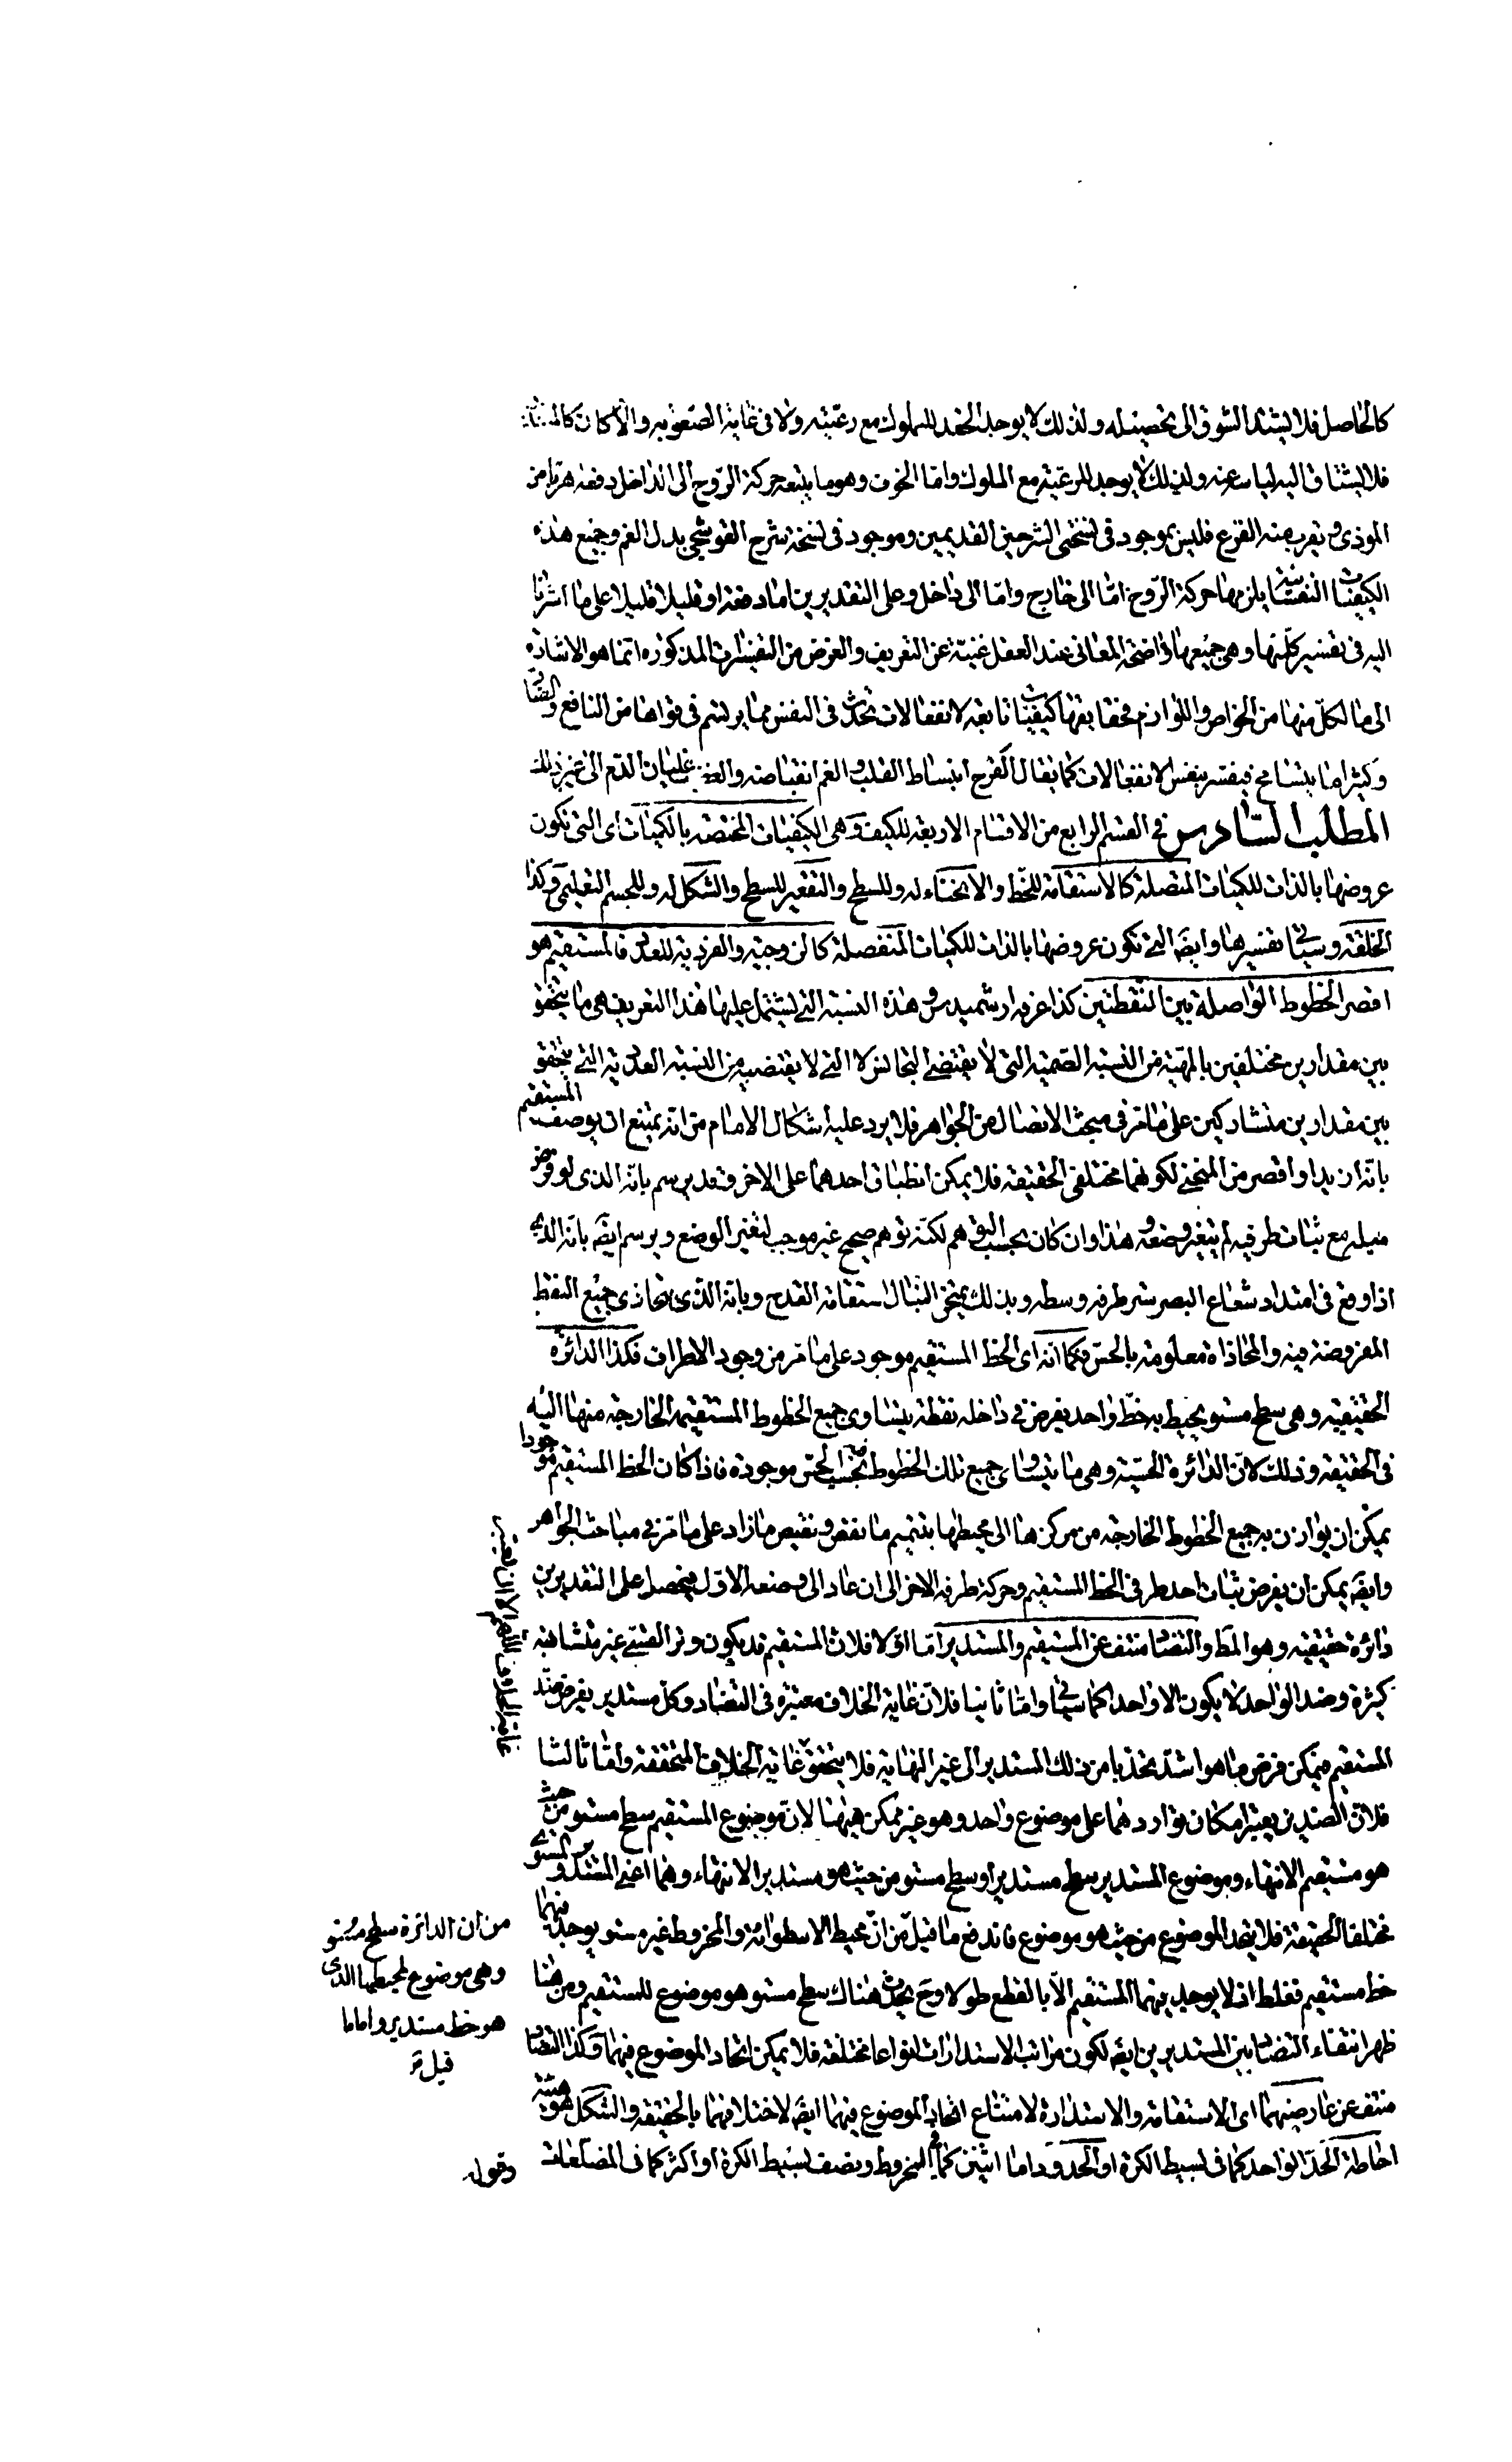 كالحاصل فلا يشتد الشوق الى تحصيله ولذلك لا يوجد الحقد للملوك مع رعيته ولا في غاية الصعوبة والا كان كالمتعذر
فلا يشتاق اليه لياسه عنه ولذلك لا يوجد للرعية مع الملوك واما الخوف وهو ما يتبعه حركة الروح الى الداخل دفعة هربا من
الموذى ويقرب منه الفزع فليس بموجود في نسختى الشرحين القديمين وموجود في نسخة شرح القوشجى بدل الغم وجميع هذه
الكيفيات النفسانية يلزمها حركة الروح امّا الى خارج وامّا الى داخل وعلى التقديرين اما دفعة او قليلا قليلا على ما اشرنا
اليه في تفسير كلّ منها وهى جميعها واضحة المعانى عند العقل غنيّة عن التعريف والغرض من التفسيرات المذكوره انّما هو الاشارة
الى ما لكلّ منها من الخواص واللوازم فحقايقها كيفيّات تابعة لانفعالات تحدث في النفس ممّا يرتسم في قواها من النافع والضارّ
وكثيرا ما يتسامح فيفسّر بنفس الانفعالات كما يقال الفرح انبساط القلب والغم انقباضه والغضب غليان الدّم الى غير ذلك
المطلب السّادس في القسم الرابع من الاقسام الاربعة للكيف وهى الكيفيات المختصّة بالكميّات اى التى تكون
عروضها بالذات للكميات المتصلة كالاستقامة للخط والانحناء له وللسطح والتقعير للسطح والشكل له وللجسم التعليمى وكذا
الخلقة وسيأتى تفسيرها وايضا التى تكون عروضها بالذات للكميات المنفصلة كالزوجية والفردية للعدد فالمستقيم هو
اقصر الخطوط الواصلة بين النقطتين كذا عرفه ارشميدس وهذه النسبة التى يشتمل عليها هذا التعريف هى ما يتحقق
بين مقدارين مختلفين بالمهيّة من النسبة الصّميّة التى لا يقتضى التجانس لا التى لا يقتضيه من النسبة العددية التى يتحقق
بين مقدارين متشاركين على ما مرّ في مبحث الاتصال من الجواهر فلا يرد عليه اشكال الامام من انه يمتنع ان يوصف المستقيم
بانّه ازيد او اقصر من المنحنى لكونهما مختلفى الحقيقة فلا يمكن انطباق احدهما على الاخر وقد يرسم بانّه الذى لو فرض
ميله مع ثبات طرفيه لم يتغير وضعه وهذا وان كان بحسب التوهم لكنّه توهم صحيح غير موجب لتغير الوضع ويرسم ايضا بانّه الذى
اذا وقع في امتداد شعاع البصر ستر طرفه وسطه وبذلك يمتحن النبّال استقامة القدح وبانّه الذى يتحاذى جميع النقط
المفروضة فيه والمحاذاة معلومة بالحسّ وكما انّه اى الخط المستقيم موجود على ما مرّ من وجود الاطراف فكذا الدائرة
الحقيقية وهى سطح مستو يحيط به خطّ واحد يفرض في داخله نقطة يتساوى جميع الخطوط المستقيمة الخارجة منها اليه
في الحقيقة وذلك لانّ الدائرة الحسّية وهى ما يتساوى جميع تلك الخطوط فيه بحسب الحسّ موجودة فاذا كان الخط المستقيم موجودا
يمكن ان يوازن به جميع الخطوط الخارجة من مركزها الى محيطها بتتميم ما نقص وتنقيص ما زاد على ما مرّ في مباحث الجواهر
وايضا يمكن ان يفرض ثبات احد طرفى الخط المستقيم وحركة طرفه الاخر الى ان عاد الى وضعه الاوّل فيحصل على التقديرين
دائرة حقيقية وهو المط والتضاد منتف عن المستقيم والمستدير امّا اوّلا فلان المستقيم قد يكون وتر القسىّ غير متشابهة
كثيرة وضد الواحد لا يكون الا واحدا كما سيأتى وامّا ثانيا فلانّ غاية الخلاف معتبرة في التضاد وكل مستدير يفرض ضد
المستقيم فيمكن فرض ما هو اشدّ تحدّبا من ذلك المستدير الى غير النهاية فلا يتحقق غاية الخلاف المتحققة وامّا ثالثا
فلانّ الضدين يعتبر امكان تواردهما على موضوع واحد وهو غير ممكن ههنا لانّ موضوع المستقيم سطح مستو من حيث
هو مستقيم الانتهاء وموضوع المستدير سطح مستدير او سطح مستو من حيث هو مستدير الانتهاء وهما اعنى المستدير والمستوى
مختلفا الحقيقة فلا يتحد الموضوع من حيث هو موضوع فاندفع ما قيل من انّ محيط الاسطوانة والمخروط غير مستو يوجد فيهما
خط مستقيم فغلط اذ لا يوجد فيهما المستقيم الّا بالقطع طولا وح يحدث هناك سطح مستو هو موضوع للمستقيم ومن هنا
ظهر انتفاء التضاد بين المستديرين ايضا لكون مراتب الاستدارات انواعا مختلفة فلا يمكن اتحاد الموضوع فيهما وكذا التضاد
منتف عن عارضيهما اى الاستقامة والاستدارة لامتناع اتحاد الموضوع فيهما ايضا لاختلافهما بالحقيقة والشكل هو هيئة
احاطة الحدّ الواحد كما في بسيط الكرة او الحدود اما اثنين كما في المخروط ونصف بسيط الكرة او اكثر كما في المضلّعات
وقوله
غاية الخلاف اللهم الا ان يعتبر
من ان الدائرة سطح مستو
وهى موضوع لمحيطها الذى
هو خط مستدير واما ما
قيل